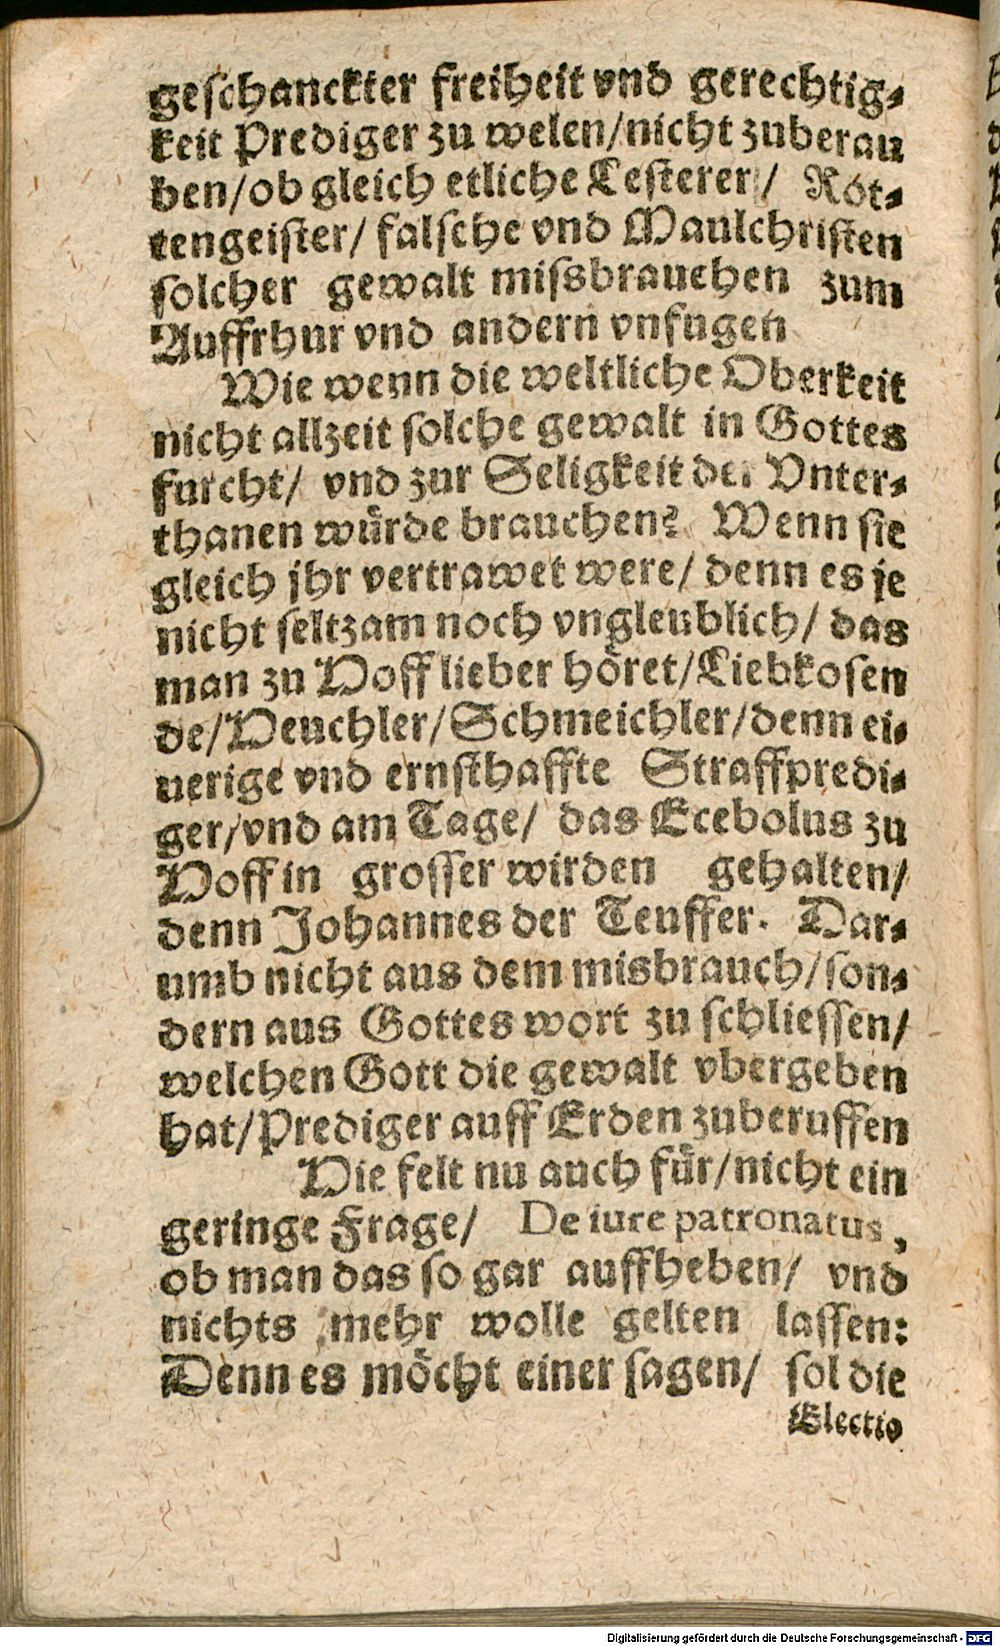 geschanckter freiheit vnd gerechtig-
keit Prediger zu welen/nicht zuberau
ben/ob gleich etliche Lesterer/ Rot-
tengeister/ falsche vnd Maulchristen
solcher gewalt missbrauchen zum
Auffrhur vnd andern vnfugen
Wie wenn die weltliche Oberkeit
nicht allzeit solche gewalt in Gottes
furcht/ vnd zur Seligkeit der Vnter-
thanen würde brauchen? Wenn sie
gleich jhr vertrawet were/ denn es je
nicht seltzam noch vngleublich/ das
man zu Hoff lieber höret/Liebkosen
de/Heuchler/Schmeichler/denn ei-
uerige vnd ernsthaffte Straffpredi-
ger/vnd am Tage/ das Ecebolus zu
Hoff in grosser wirden gehalten/
denn Johannes der Teuffer. Dar-
umb nicht aus dem misbrauch/son-
dern aus Gottes wort zu schliessen/
welchen Gott die gewalt vbergeben
hat/Prediger auff Erden zuberuffen
Hie felt nu auch für/nicht ein
geringe Frage/ De iure patronatus,
ob man das so gar auffheben/ vnd
nichts mehr wolle gelten lassen:
Denn es möcht einer sagen/ sol die
Electio
Digitalisierung gefördert durch die Deutsche Forschungsgemeinschaft - DFG